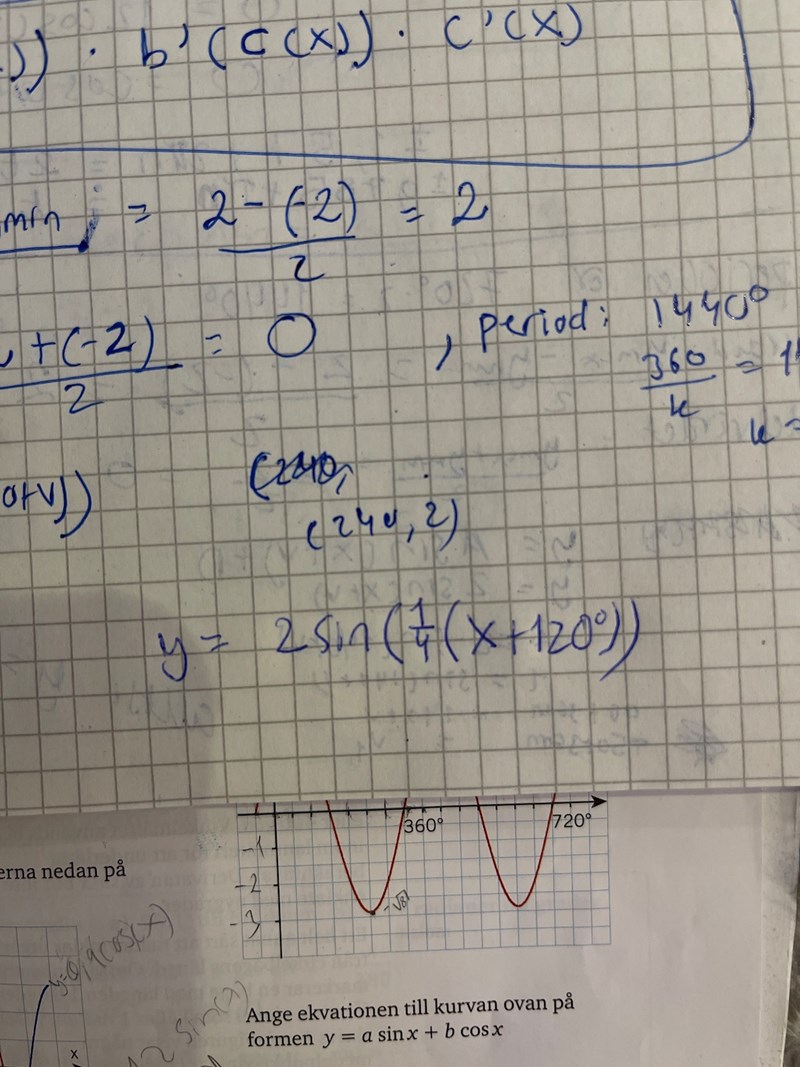 )) · b'(c(x)) · c'(x)
min = 2-(-2) / 2 = 2
+(-2) / 2 = 0 , period: 1440°
360 / k = 1
k =
(240,
(240, 2)
y = 2 sin(1/4(x+120°))
360° 720°
-1
-2
-3 -√8
erna nedan på
Ange ekvationen till kurvan ovan på
formen y = a sin x + b cos x
x